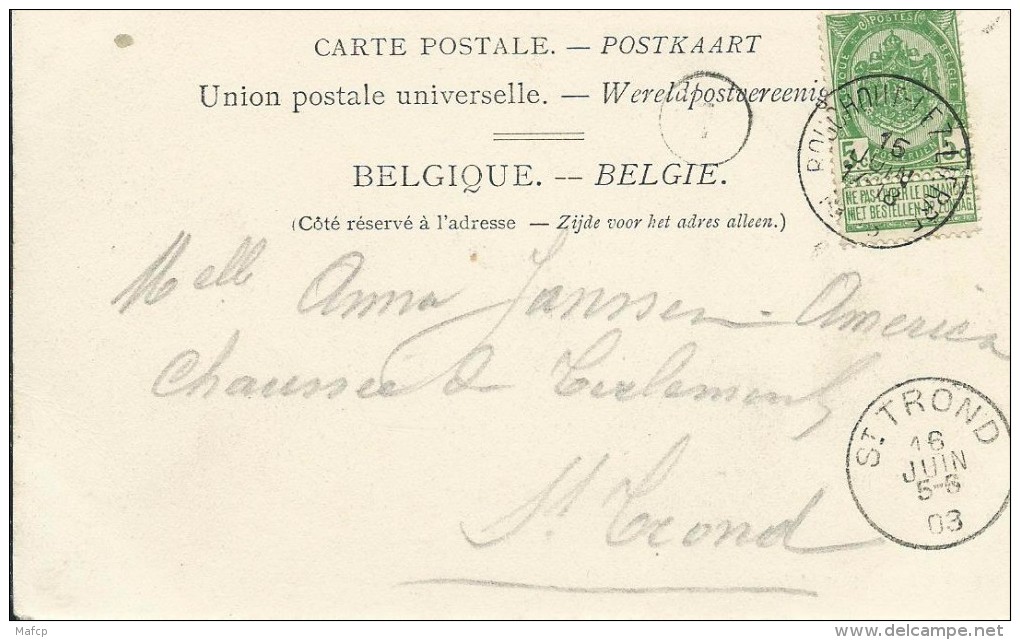 CARTE POSTALE. — POSTKAART
Union postale universelle. — Wereldpostvereenig
BELGIQUE. -- BELGIE.
(Côté réservé à l'adresse — Zijde voor het adres alleen.)
POSTES
5 POSTERIJEN 5
NE PAS LIVRER LE DIMANCHE
NIET BESTELLEN OP ZONDAG.
15
JUIN
Mell Anna Janssen-America
Chaussée de Tirlemont
St Trond
ST TROND
16
JUIN
5-6
03
Mafcp
www.delcampe.net